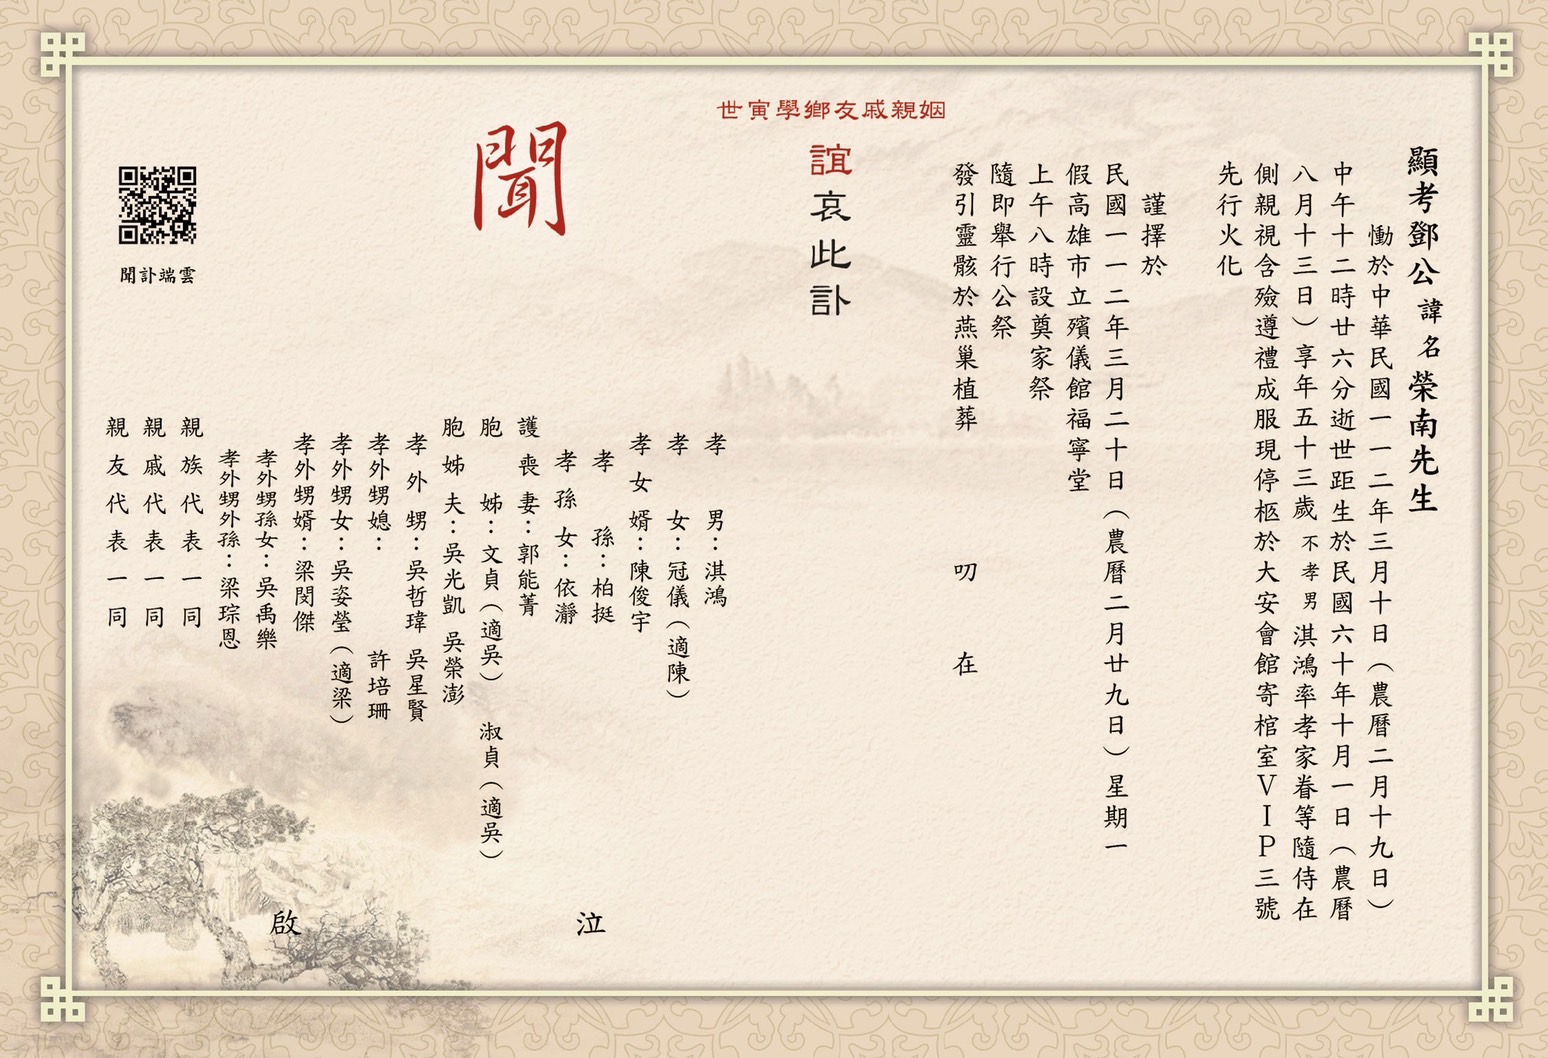 顯考鄧公諱名榮南先生
慟於中華民國一一二年三月十日（農曆二月十九日）
中午十二時廿六分逝世距生於民國六十年十月一日（農曆
八月十三日）享年五十三歲不孝男淇鴻率孝家眷等隨侍在
側親視含殮遵禮成服現停柩於大安會館寄棺室ＶＩＰ三號
先行火化
謹擇於
民國一一二年三月二十日（農曆二月廿九日）星期一
假高雄市立殯儀館福寧堂
上午八時設奠家祭
隨即舉行公祭
發引靈骸於燕巢植葬
叨在
姻親戚友鄉學寅世
誼哀此訃
聞
孝男：淇鴻
孝女：冠儀（適陳）
孝女婿：陳俊宇
孝孫：柏挺
孝孫女：依瀞
護喪妻：郭能菁
胞姊：文貞（適吳） 淑貞（適吳）
胞姊夫：吳光凱 吳榮澎
孝外甥：吳哲瑋 吳星賢
孝外甥媳： 許培珊
孝外甥女：吳姿瑩（適梁）
孝外甥婿：梁閔傑
孝外甥孫女：吳禹樂
孝外甥外孫：梁琮恩
親族代表一同
親戚代表一同
親友代表一同
泣
啟
聞訃端雲